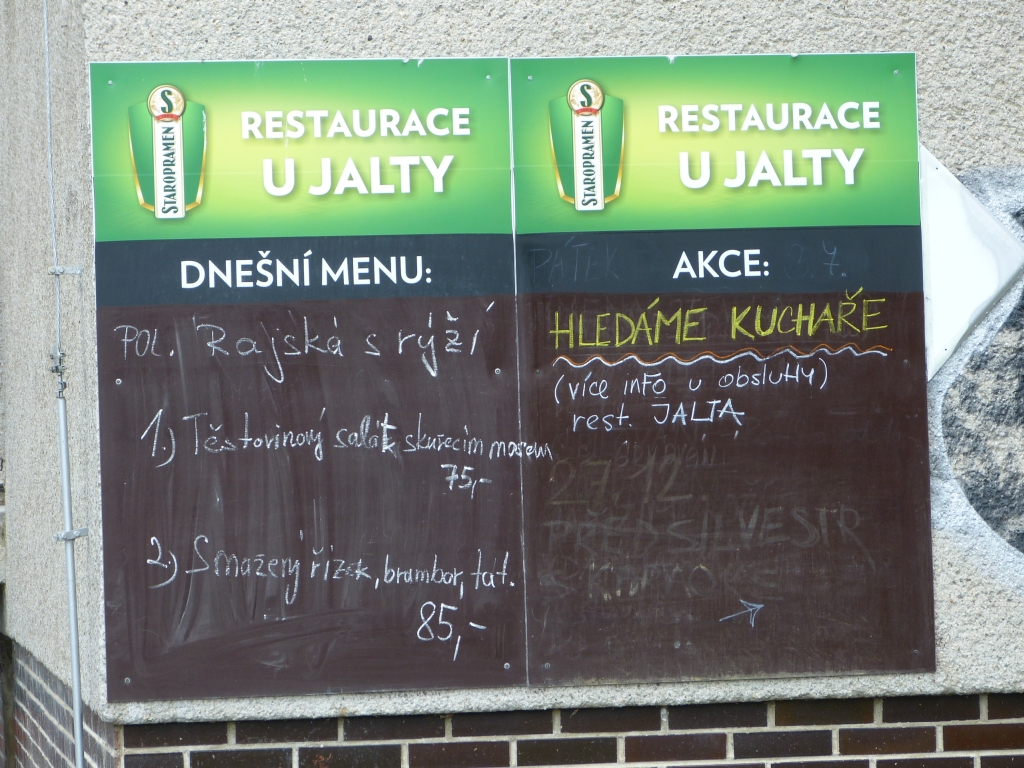 STAROPRAMEN
RESTAURACE
U JALTY
DNEŠNÍ MENU:
POL. Rajská s rýží
1.) Těstovinový salát skuřecím masem
75,-
2.) Smažený řízek, brambor, tat.
85,-
STAROPRAMEN
RESTAURACE
U JALTY
PÁTEK 3.7.
AKCE:
HLEDÁME KUCHAŘE
(více info u obsluhy)
rest. JALTA
27.12.
PŘEDSILVESTR